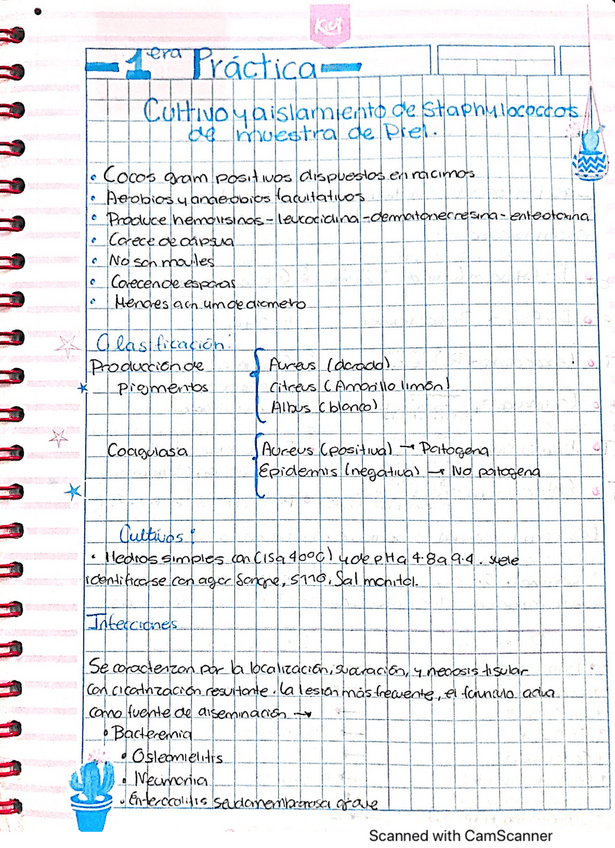 Kiut
1era Práctica
Cultivo y aislamiento de Staphylococcos
de muestra de Piel.
• Cocos gram positivos dispuestos en racimos
• Aerobios y anaerobios facultativos
• Produce hemolisinas - leucocidina - dermatonecresina - enteotoxina
• Carece de cápsula
• No son moviles
• Carecen de esporas
• Menores a 1 um de diametro
Clasificación:
Producción de
pigmentos
Aureus (dorado)
Citreus (Amarillo limón)
Albus (blanco)
Coagulasa
Aureus (positiva) → Patogena
Epidermis (negativa) → No patogena
Cultivos:
• Medios simples con (15 a 40°C) y de pH a 4.8 a 9.4. suele
identificarse con agar Sangre, S110, Sal manitol.
Infecciones
Se caracterizan por la localización, supuración, y necosis tisular
con cicatrización resultante. La lesión más frecuente, el forúnculo actua
como fuente de diseminación →
• Bacteremia
• Osteomielitis
• Neumonia
• Enterocolitis seudomembranosa grave
Scanned with CamScanner